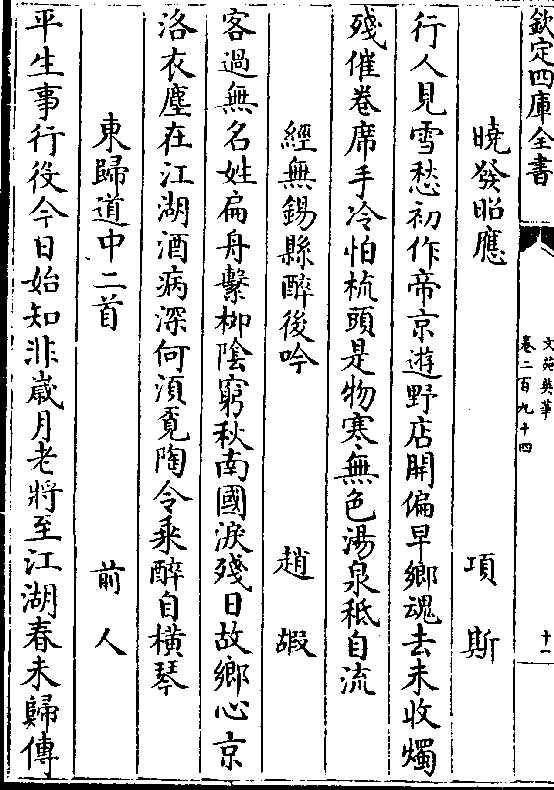 欽定四庫全書
文苑英華
卷二百九十四
十一
曉發昭應 項斯
行人見雪愁初作帝京遊野店開偏早鄉魂去未收燭
殘催卷席手冷怕梳頭是物寒無色湯泉秪自流
經無錫縣醉後吟 趙嘏
客過無名姓扁舟繫柳陰窮秋南國淚殘日故鄉心京
洛衣塵在江湖酒病深何須覓陶令乘醉自橫琴
東歸道中二首 前人
平生事行役今日始知非歲月老將至江湖春未歸傳